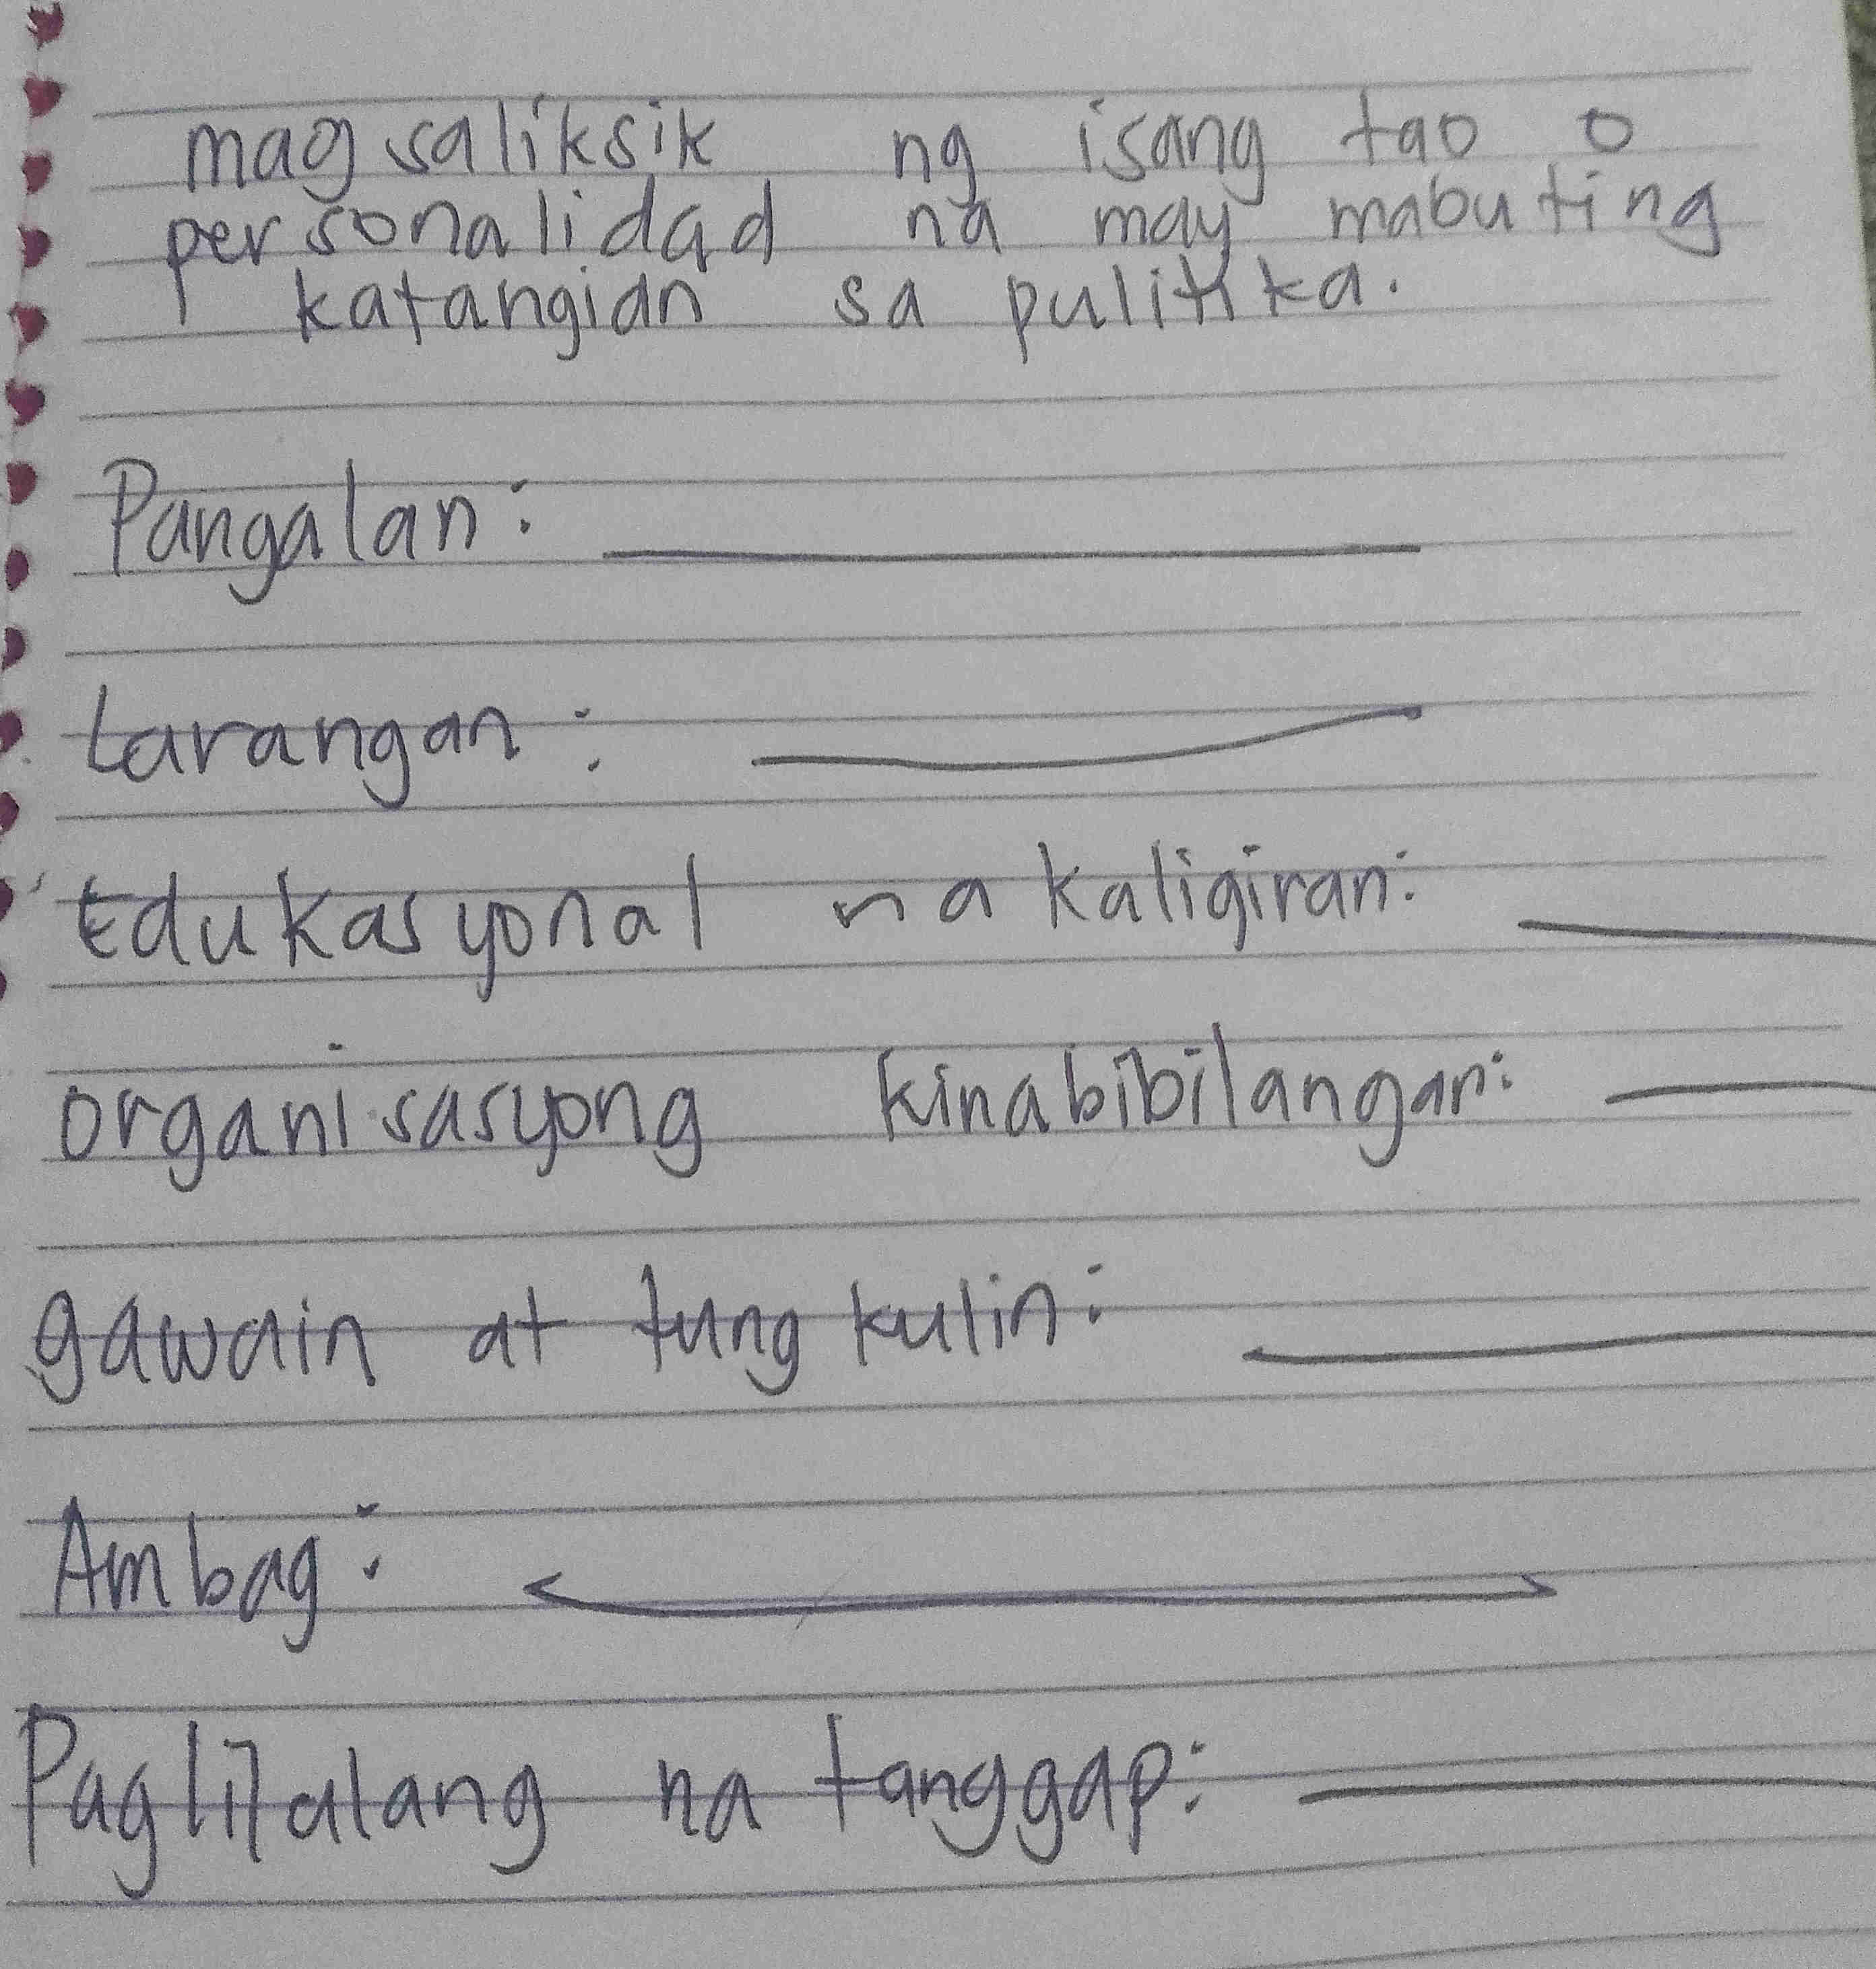 magsaliksik ng isang tao o
personalidad na may mabuting
katangian sa pulitika.
Pangalan:
Larangan:
Edukasyonal na kaligiran:
organisasyong kinabibilangan:
gawain at tungkulin:
Ambag:
na tanggap: